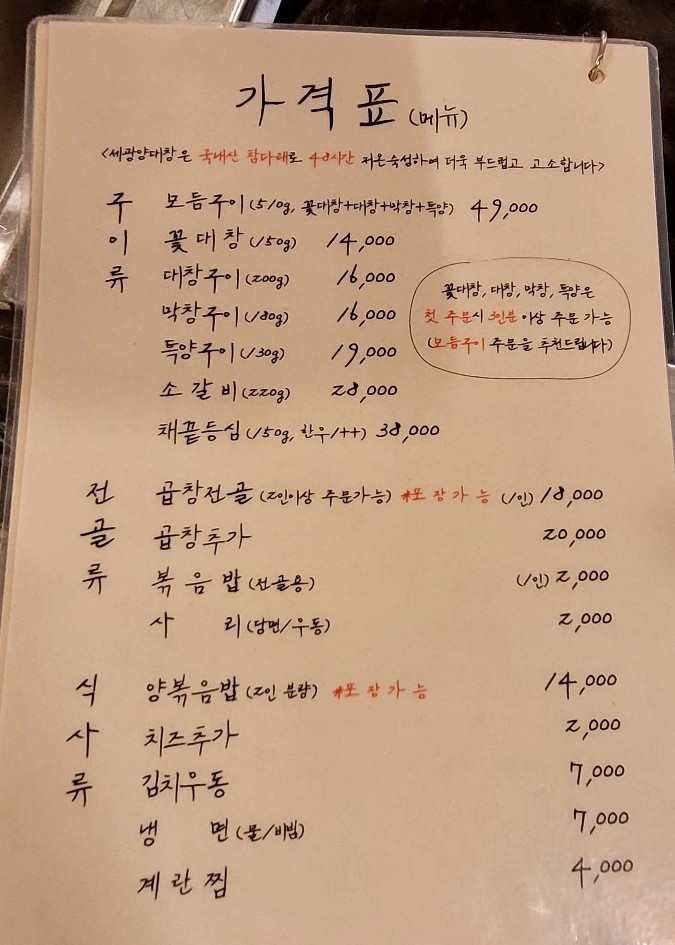 가격표 (메뉴)
<세광양대창은 국내산 참다래로 48시간 저온숙성하여 더욱 부드럽고 고소합니다>
구이류
모듬구이(510g, 꽃대창+대창+막창+특양) 49,000
꽃대창(150g) 14,000
대창구이(200g) 16,000
막창구이(180g) 16,000
특양구이(130g) 19,000
소갈비(220g) 28,000
채끝등심(150g, 한우1++) 38,000
꽃대창, 대창, 막창, 특양은
첫 주문시 3인분 이상 주문 가능
(모듬구이 주문을 추천드립니다)
전골류
곱창전골(2인이상 주문가능) #포장가능 (1인) 18,000
곱창추가 20,000
볶음밥(전골용) (1인) 2,000
사리(당면/우동) 2,000
식사류
양볶음밥(2인 분량) #포장가능 14,000
치즈추가 2,000
김치우동 7,000
냉면(물/비빔) 7,000
계란찜 4,000